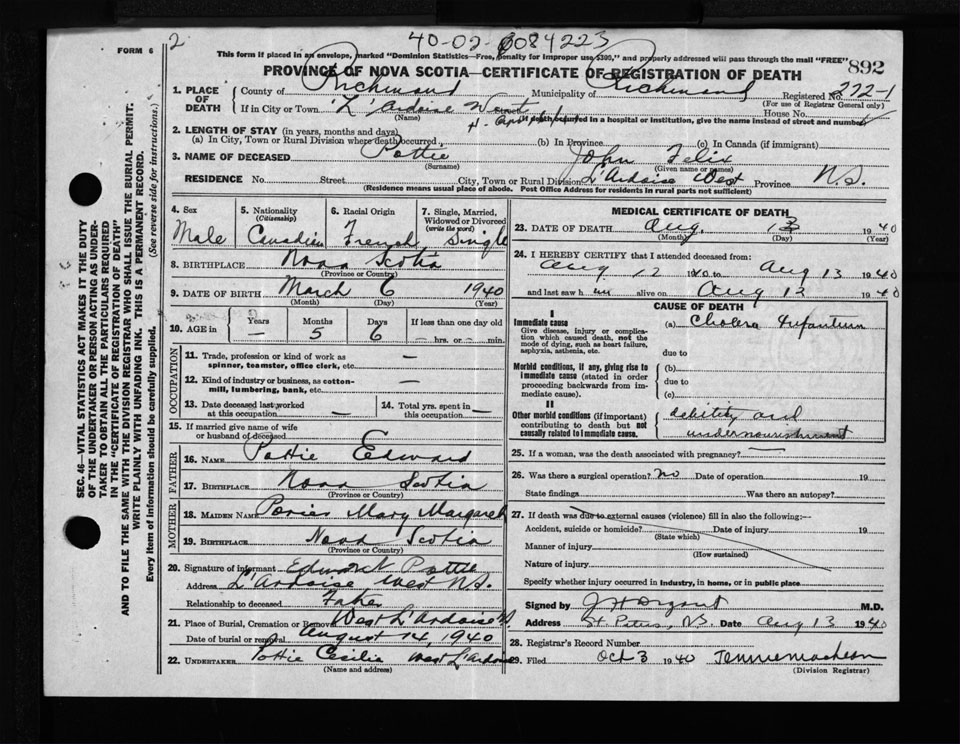 FORM 6 2 40-02- 084223
This form if placed in an envelope, marked "Dominion Statistics—Free, Penalty for improper use $300," and properly addressed will pass through the mail "FREE"
PROVINCE OF NOVA SCOTIA—CERTIFICATE OF REGISTRATION OF DEATH 892
1. PLACE OF DEATH County of Richmond Municipality of Richmond Registered No. 222-1
(For use of Registrar General only)
If in City or Town L'Ardoise West House No.
(Name) occurred in a hospital or institution, give the name instead of street and number
2. LENGTH OF STAY (in years, months and days)
(a) In City, Town or Rural Division where death occurred (b) In Province (c) In Canada (if immigrant)
3. NAME OF DECEASED Pottie John Felix
(Surname) (Given name or names)
RESIDENCE No. Street City, Town or Rural Division L'Ardoise West Province N.S.
(Residence means usual place of abode. Post Office Address for residents in rural parts not sufficient)
4. Sex Male
5. Nationality (Citizenship) Canadian
6. Racial Origin French
7. Single, Married, Widowed or Divorced (write the word) Single
8. BIRTHPLACE Nova Scotia
(Province or Country)
9. DATE OF BIRTH March 6 1940
(Month) (Day) (Year)
10. AGE in Years Months Days If less than one day old
— 5 6 — hrs. or — min.
OCCUPATION
11. Trade, profession or kind of work as spinner, teamster, office clerk, etc. —
12. Kind of industry or business, as cotton-mill, lumbering, bank, etc. —
13. Date deceased last worked at this occupation —
14. Total yrs. spent in this occupation —
15. If married give name of wife or husband of deceased
FATHER
16. NAME Pottie Edward
17. BIRTHPLACE Nova Scotia
(Province or Country)
MOTHER
18. MAIDEN NAME Mary Margaret
19. BIRTHPLACE Nova Scotia
(Province or Country)
20. Signature of informant Pottie
Address L'Ardoise West N.S.
Relationship to deceased Father
21. Place of Burial, Cremation or Removal West L'Ardoise
Date of burial or removal August 14, 1940
22. UNDERTAKER Pottie Cecilia West L'Ardoise
(Name and address)
MEDICAL CERTIFICATE OF DEATH
23. DATE OF DEATH Aug. 13 1940
(Month) (Day) (Year)
24. I HEREBY CERTIFY that I attended deceased from:
Aug 12 1940 to Aug 13 1940
and last saw h im alive on Aug 12 1940
CAUSE OF DEATH
I
Immediate cause (a) Cholera Infantum
Give disease, injury or complication which caused death, not the mode of dying, such as heart failure, asphyxia, asthenia, etc.
due to
Morbid conditions, if any, giving rise to immediate cause (stated in order proceeding backwards from immediate cause). (b)
due to
(c)
II
Other morbid conditions (if important) contributing to death but not causally related to immediate cause. debility and
undernourishment
25. If a woman, was the death associated with pregnancy? —
26. Was there a surgical operation? no Date of operation 19
State findings Was there an autopsy?
27. If death was due to external causes (violence) fill in also the following:—
Accident, suicide or homicide? Date of injury 19
(State which)
Manner of injury
(How sustained)
Nature of injury
Specify whether injury occurred in industry, in home, or in public place
Signed by M.D.
Address St. Peters, N.S. Date Aug 13 1940
28. Registrar's Record Number
29. Filed Oct 3 1940
(Division Registrar)
SEC. 46—VITAL STATISTICS ACT MAKES IT THE DUTY
OF THE UNDERTAKER OR PERSON ACTING AS UNDER-
TAKER TO OBTAIN ALL THE PARTICULARS REQUIRED
IN THE "CERTIFICATE OF REGISTRATION OF DEATH"
AND TO FILE THE SAME WITH THE DIVISION REGISTRAR WHO SHALL ISSUE THE BURIAL PERMIT.
WRITE PLAINLY WITH UNFADING INK. THIS IS A PERMANENT RECORD.
Every item of information should be carefully supplied. (See reverse side for instructions.)